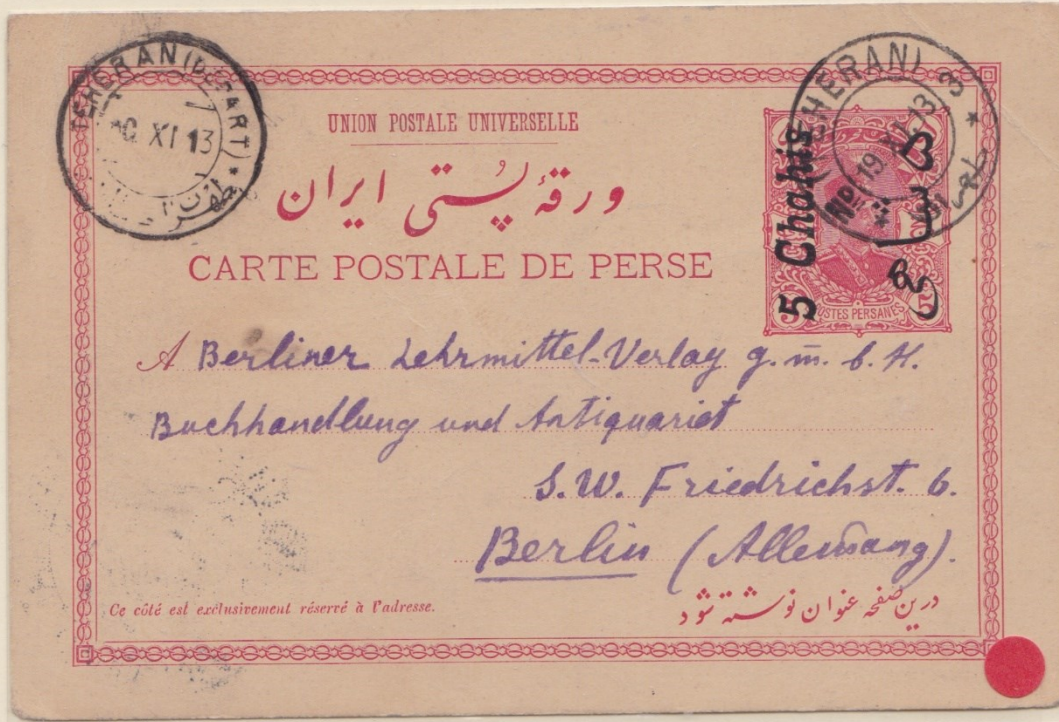 TEHERAN (DÉPART)
XI 13
TEHERAN) 3
No 19 XI 13
UNION POSTALE UNIVERSELLE
ورقهٔ پستی ایران
CARTE POSTALE DE PERSE
5 Chahis
5
POSTES PERSANES
5
A Berliner Lehrmittel-Verlag g. m. b. H.
Buchhandlung und Antiquariat
S.W. Friedrichst. 6.
Berlin (Allemang).
Ce côté est exclusivement réservé à l'adresse.
درین صفحه عنوان نوشته شود